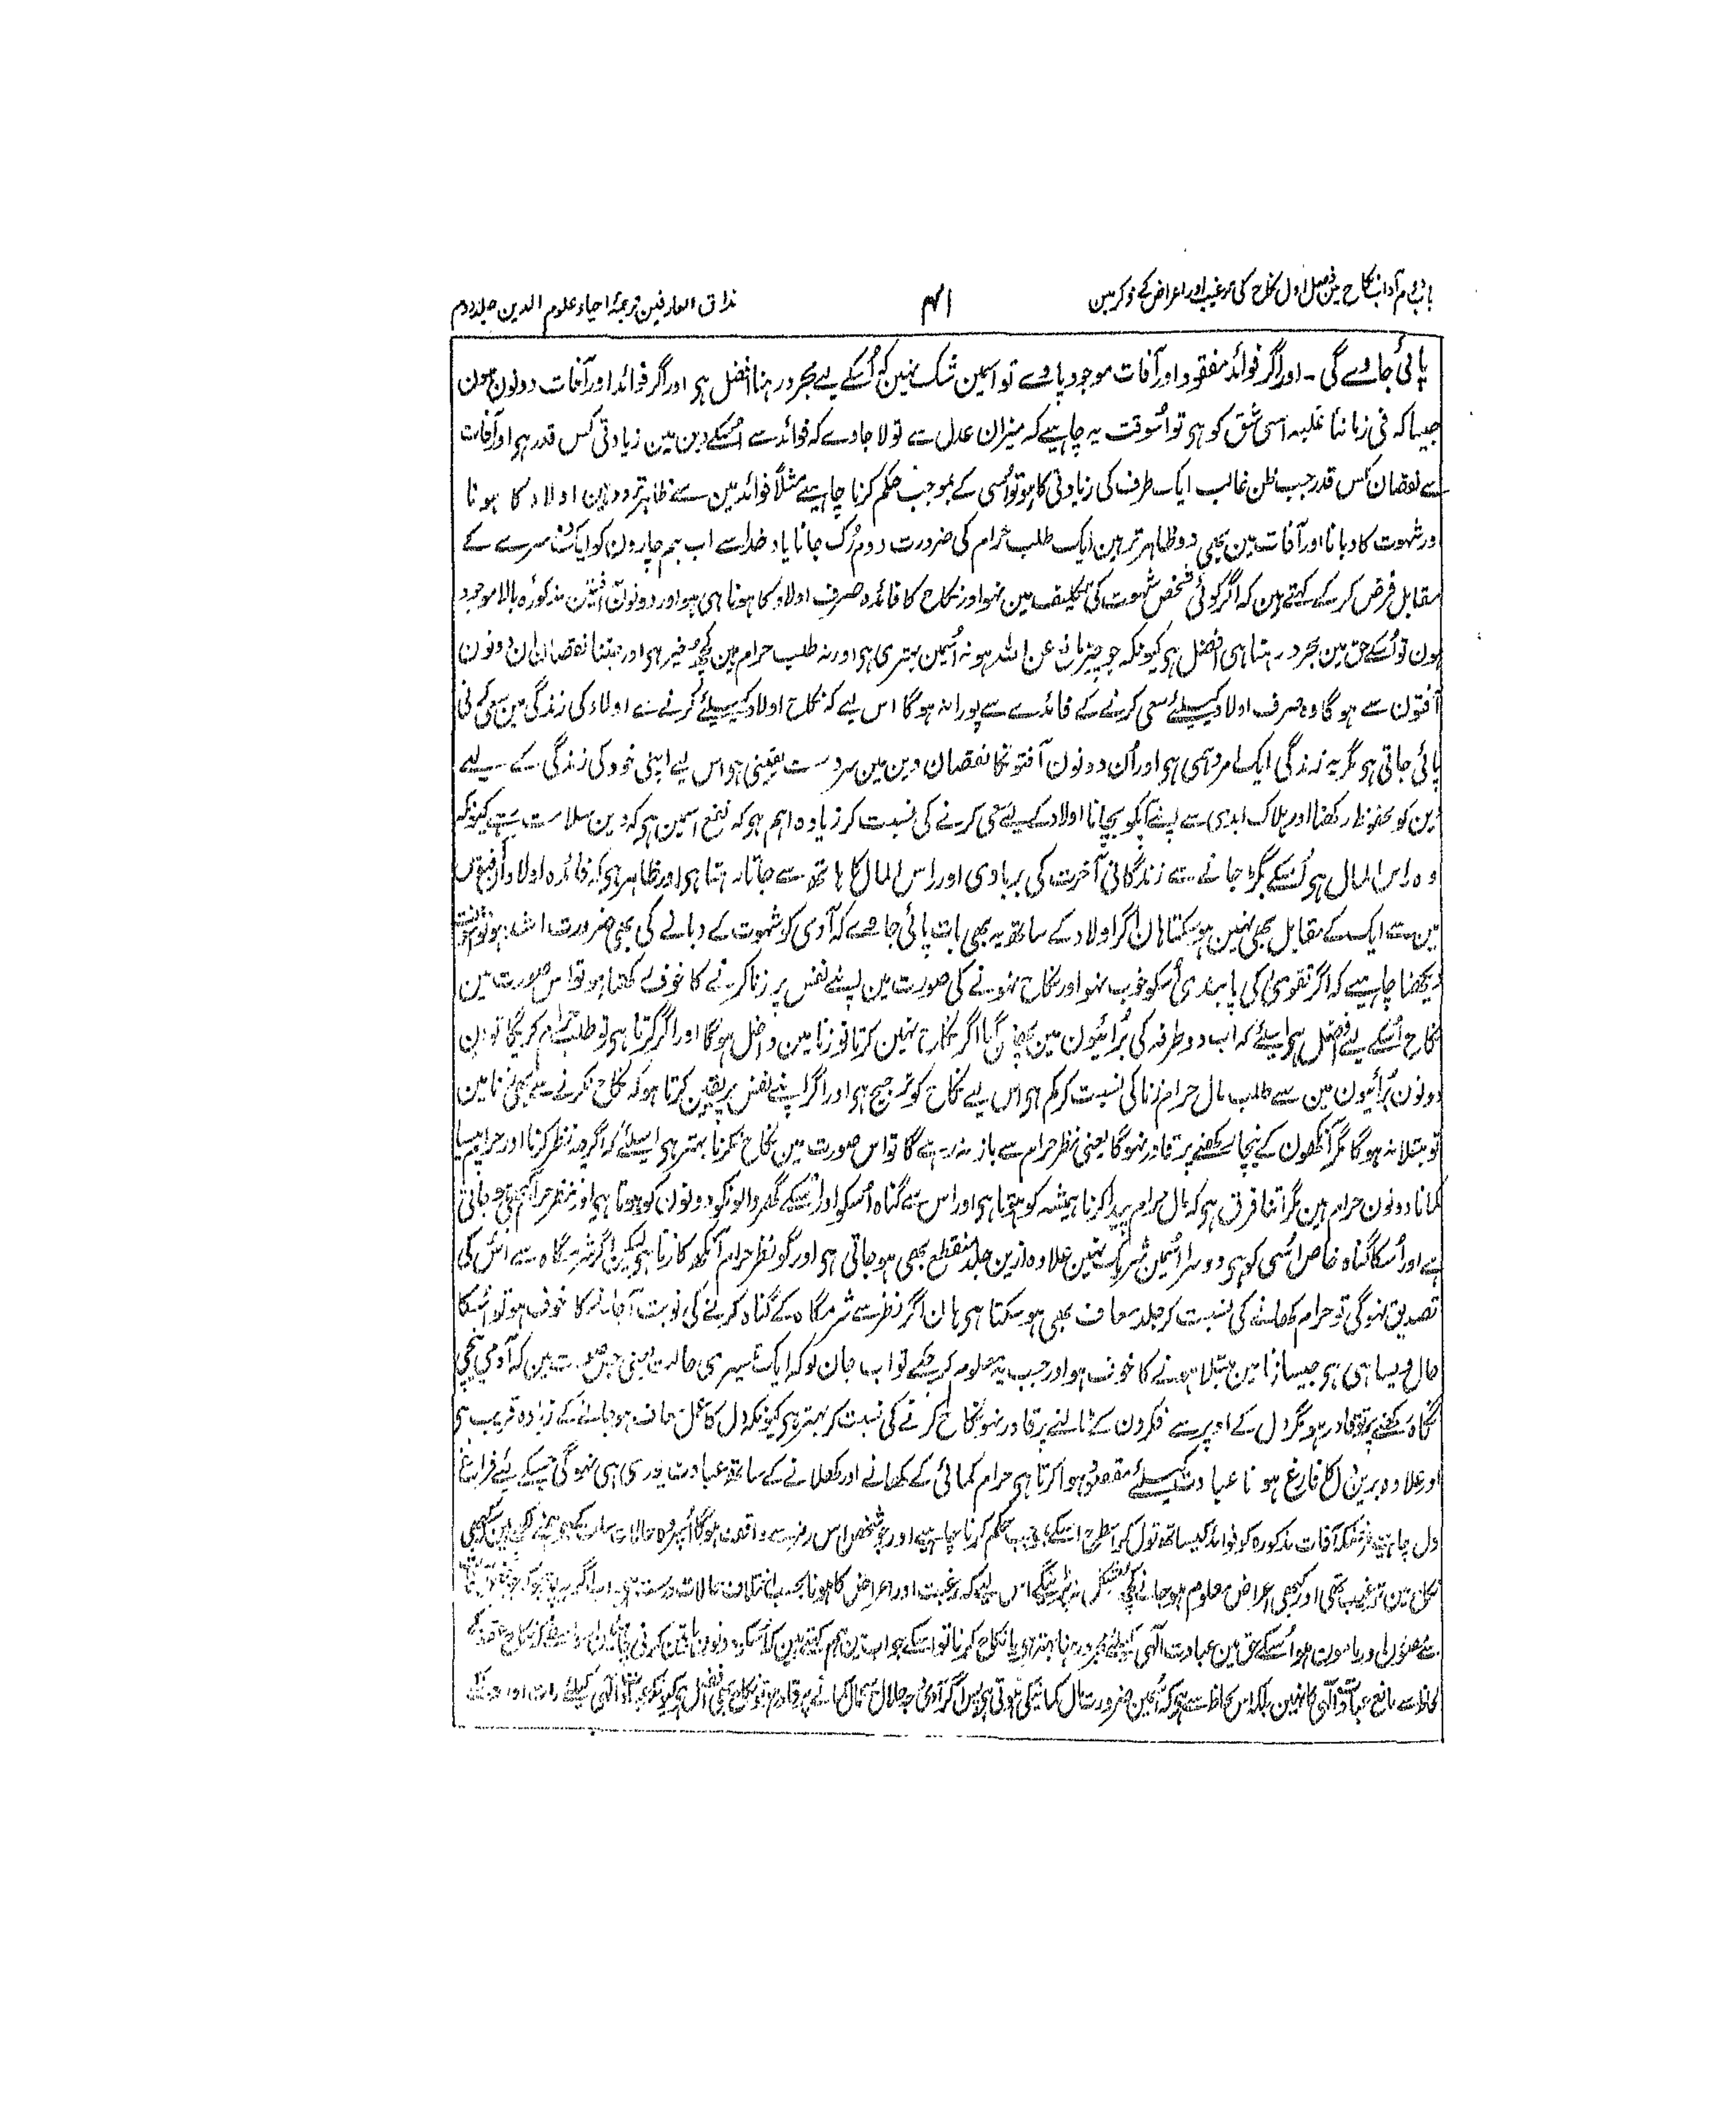 باب دوم آداب نکاح مین فصل اول نکاح کی ترغیب اور اعراض کے ذکر مین
۴۱
مذاق العارفین ترجمۂ احیاء علوم الدین جلد دوم
پائی جاوے گی ۔ اور اگر فوائد مفقود اور آفات موجود پاوے تو اسمین شک نہین کہ اُسکے لیے مجرد رہنا افضل ہی اور اگر فوائد اور آفات دونون ہون
جیسا کہ فی زماننا غلبہ اسی شق کو ہی تو اُسوقت یہ چاہیے کہ میزان عدل سے تولا جاوے کہ فوائد سے اُسکے دین مین زیادتی کس قدر ہی اور آفات
سے نقصان کس قدر جب ظن غالب ایک طرف کی زیادتی کا ہو تو اُسی کے بموجب حکم کرنا چاہیے مثلاً فوائد مین سے ظاہر تر دو ہین اولاد کا ہونا
ور شہوت کا دبانا اور آفات مین بھی دو ظاہر تر ہین ایک طلب حرام کی ضرورت دوم رُک جانا یاد خدا سے اب ہم چارون کو ایک دوسرے کے
مقابل فرض کر کے کہتے ہین کہ اگر کوئی شخص شہوت کی تکلیف مین نہو اور نکاح کا فائدہ صرف اولاد کا ہونا ہی ہو اور دونون آفتین مذکورہ بالا موجود
ہون تو اُسکے حق مین مجرد رہتا ہی افضل ہی کیونکہ جو چیز مانع عن اللہ ہو نہ اُسمین بہتری ہی اور نہ طلب حرام مین کچھ خیر ہی اور جتنا نقصان ان دونون
آفتون سے ہو گا وہ صرف اولاد کیلئے سعی کرنے کے فائدے سے پورا نہ ہوگا اس لیے کہ نکاح اولاد کیلئے کرنے سے اولاد کی زندگی مین سعی کرنی
پائی جاتی ہی مگر یہ زندگی ایک امر وہمی ہی اور اُن دونون آفتونکا نقصان دین مین سردست یقینی ہی اس لیے اپنی خود کی زندگی کے لیے
دین کو محفوظ رکھنا اور ہلاک ابدی سے اپنے آپکو بچانا اولاد کے لیے سعی کرنے کی نسبت کر زیادہ اہم ہی کہ نفع اسمین ہی کہ دین سلامت رہے کیونکہ
وہ راس المال ہی اُسکے بگڑ جانے سے زندگانی آخرت کی بربادی اور راس المال کا ہاتھ سے جاتا رہتا ہی اور ظاہر ہی کہ فائدہ اولاد اُن آفتون
مین سے ایک کے مقابل بھی نہین ہو سکتا ہان اگر اولاد کے ساتھ یہ بھی بات پائی جاوے کہ آدمی کو شہوت کے دبانے کی بھی ضرورت اشد ہو تو
دیکھنا چاہیے کہ اگر تقویٰ کی پابندی اُسکو خوب نہو اور نکاح نہونے کی صورت مین اپنے نفس پر زنا کرنے کا خوف رکھتا ہو تو اس صورت مین
نکاح اُسکے لیے افضل ہی اسلئے کہ اب دو طرفہ کی بُرائیون مین پھنس گیا اگر نکاح نہین کرتا تو زنا مین داخل ہوگا اور اگر کرتا ہی تو طلب حرام کریگا تو ان
دونون بُرائیون مین سے طلب مال حرام زنا کی نسبت کر کم ہی اس لیے نکاح کو ترجیح ہی اور اگر اپنے نفس پر یقین کرتا ہو کہ نکاح نکرنے سے بھی زنا مین
تو مبتلا نہ ہوگا مگر آنکھون کے نیچا رکھنے پر قادر نہوگا یعنی نظر حرام سے باز نہ رہے گا تو اس صورت مین نکاح نکرنا بہتر ہی اسلئے کہ اگرچہ نظر کرنا اور حرام پیسا
کمانا دونون حرام ہین مگر اتنا فرق ہی کہ مال حرام پیدا کرنا ہمیشہ کو ہوتا ہی اور اس سے گناہ اُسکو اور اُسکے گھر والونکو دونون کو ہوتا ہی اور نظر حرام کبھی ہو جاتی
ہے اور اُسکا گناہ خاص اُسی کو ہی دوسرا اُسمین شریک نہین علاوہ ازین جلد منقطع بھی ہو جاتی ہی اور گو نظر حرام آنکھ کا زنا ہی لیکن اگر شرمگاہ سے اُس کی
تصدیق نہوگی تو حرام کھانے کی نسبت کر جلد معاف بھی ہو سکتا ہی ہان اگر نظر سے شرمگاہ کے گناہ کرنے کی نوبت آجانیکا خوف ہو تو اُسکا
حال ویسا ہی ہی جیسا زنا مین مبتلا ہونے کا خوف ہو اور جب یہ معلوم کر چکے تو اب جان لو کہ ایک تیسری حالت یعنی جس صورت مین کہ آدمی نیچی
نگاہ رکھنے پر تو قادر ہو مگر دل کے اوپر سے فکرون کے ٹالنے پر قادر نہو نکاح کرنے کی نسبت کر بہتر ہی کیونکہ دل کا عمل معاف ہو جانے کے زیادہ قریب ہی
اور علاوہ برین دل فارغ ہونا عبادت کیلئے مقصود ہوا کرتا ہی حرام کمائی کے کھانے اور کھلانے کے ساتھ عبادت پوری ہی نہوگی جسکے لیے فراغ
دل چاہیے غرضکہ آفات مذکورہ کو فوائد کیساتھ تول کر اسطرح اُسکے بموجب حکم کرنا چاہیے اور جو شخص اس رمز سے واقف ہوگا اُسپر وہ حالات سلف کے جو ہمنے لکھے ہین کہ کبھی
نکاح مین ترغیب تھی اور کبھی اعراض معلوم ہو جانے کچھ مشکل نہ پڑینگے اس لیے کہ رغبت اور اعراض کا ہونا بحسب اختلاف حالات درست ہی اب اگر یہ پوچھو کہ جو شخص
سے محفوظ اور مامون ہو اُسکے حق مین عبادت الٰہی کیلئے مجرد رہنا بہتر ہی یا نکاح کرنا تو اُسکے جواب مین ہم کہتے ہین کہ اُسکو دونون باتین کرنی چاہئین اسواسطے کہ نکاح عقد کے
لحاظ سے مانع عبادت الٰہی کا نہین بلکہ اس لحاظ سے ہی کہ اُسمین ضرورت مال کمانیکی ہوتی ہی پس اگر آدمی وجہ حلال سے مال کمانے پر قادر ہو تو نکاح بھی افضل ہی کیونکہ عبادت الٰہی کیلئے رات اور دن کے